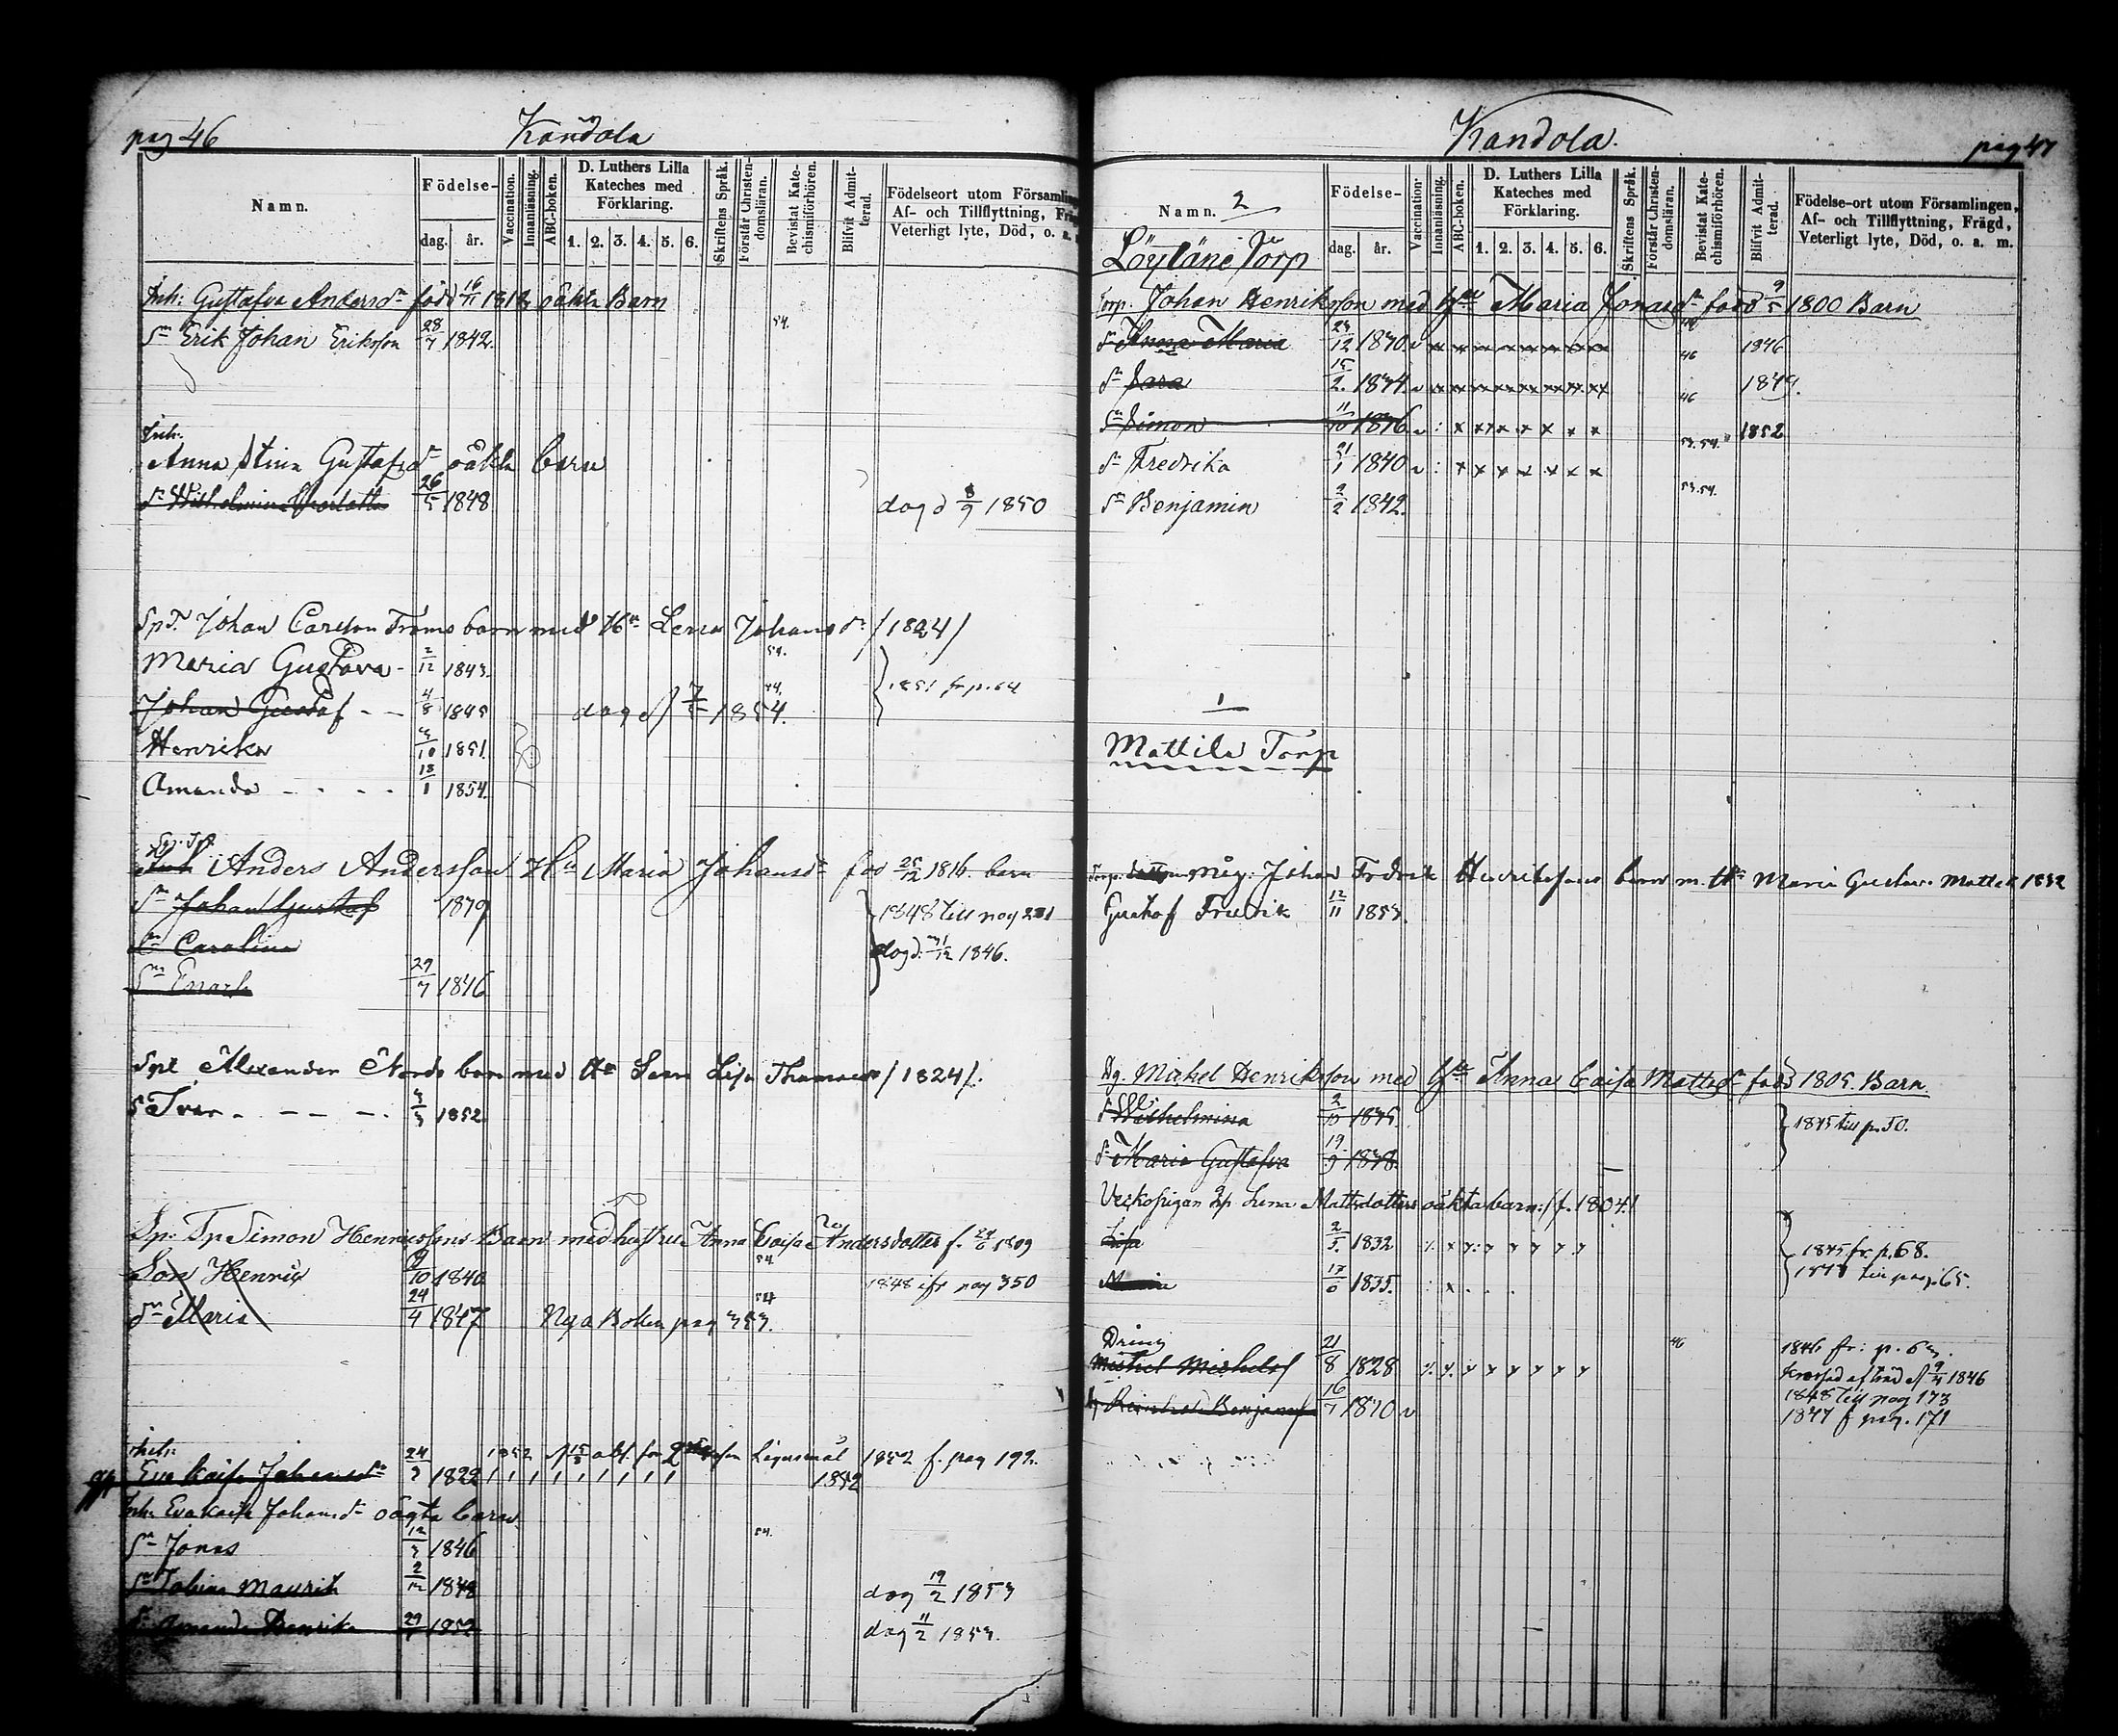 pag 46
Kandola
Namn.
Födelse-
dag.
år.
Vaccination.
Innanläsning.
ABC-boken.
D. Luthers Lilla
Kateches med
Förklaring.
1. 2. 3. 4. 5. 6.
Skriftens Språk.
Förstår Christendomsläran.
Bevistat Katechismiförhören.
Blifvit Admitterad.
Födelseort utom Församlin
Af- och Tillflyttning, Fräg
Veterligt lyte, Död, o. a. m
Inh: Gustafva Andersdr född 16/11 1818 oäkta Barn
Sn Erik Johan Eriksson 28/7 1842. 54.
Inh.
Anna Stina Gustafsdr oäkta barn
dr Wilhelmina Charlotta 26/5 1848 dog d 8/9 1850
Johan Carlson Froms barn med H Lena Johansdr /1824/
Maria Gustava - 2/12 1843. 54.
Johan Gustaf - - 4/8 1845 dog d 7/5 1854. 1851 fr p. 64
Henrika 3/10 1851.
Amanda - - - - 18/1 1854.
Anders Andersson Hu Maria Johansdr fod 25/12 1816. barn
Sn Johan Gustaf 1879 1848 till pag 281
Carolina dog d. 31/12 1846.
Sn Enoch 29/7 1846
Alexander Nords barn med Hu Lena Lisa /1824/.
Iver - - - - 3/3 1852
Sp. Tp Simon Henricssons Barn med hustru Anna Caisa Andersdotter f. 24/6 1809
Son Henric 9/10 1840 54 1848 ifr pag 350
dr Maria 24/4 1847 54 Nya Boken pag 353.
Inh:
Eva Kaisa Johansdr 24/3 1822 1852 15/3 abl. for 2 resan Lägersmål 1852 f. pag 192.
1852
Inh. Eva Kaisa Johansdr oägta barn
Sn Jonas 12/3 1846 54.
Sn Tobias Maurits 2/12 1848 dog 19/2 1853
dr Amanda Henrika 29/7 1852 dog 11/2 1853.
Kandola.
pag 47
Namn. 2
Födelse-
dag.
år.
Vaccination.
Innanläsning.
ABC-boken.
D. Luthers Lilla
Kateches med
Förklaring.
1. 2. 3. 4. 5. 6.
Skriftens Språk.
Förstår Christendomsläran.
Bevistat Katechismiförhören.
Blifvit Admitterad.
Födelse-ort utom Församlingen,
Af- och Tillflyttning, Frägd,
Veterligt lyte, Död, o. a. m.
Löyläne Torp
Torp. Johan Henriksson med Hu Maria Jonasdr född 9/5 1800 Barn
dr Anna Maria 12 1830 v 46 1846
dr Sara 15/2. 1834. v 46 1849.
Sn Simon 11/10 1836 v 53.54. 1852
dr Fredrika 21/1 1840 v 53.54.
Sn Benjamin 2/2 1842.
1
Mattila Torp
Johan Fredrik Henrikssons barn m. Hu Maria Gustava 1832
Gustaf Fredrik 12/11 1853.
Dg. Michel Henriksson med Hu Anna Caisa Mattsdr född 1805. Barn
dr Wilhelmina 2/10 1835. 1845 till p. 50.
dr Maria Gustafva 19/9 1838.
Lena Mattsdotters oäkta barn: /f. 1804/
Lisa 2/5. 1832 1845 fr p. 68.
Maria 17/6 1835. till pag. 65.
Dräng
Michel Michelsf 21/8 1828 46 1846 fr: p. 63.
9/4 1846
Benjamsf 16/7 1830 v 1848 till pag 173
1847 f pag. 171